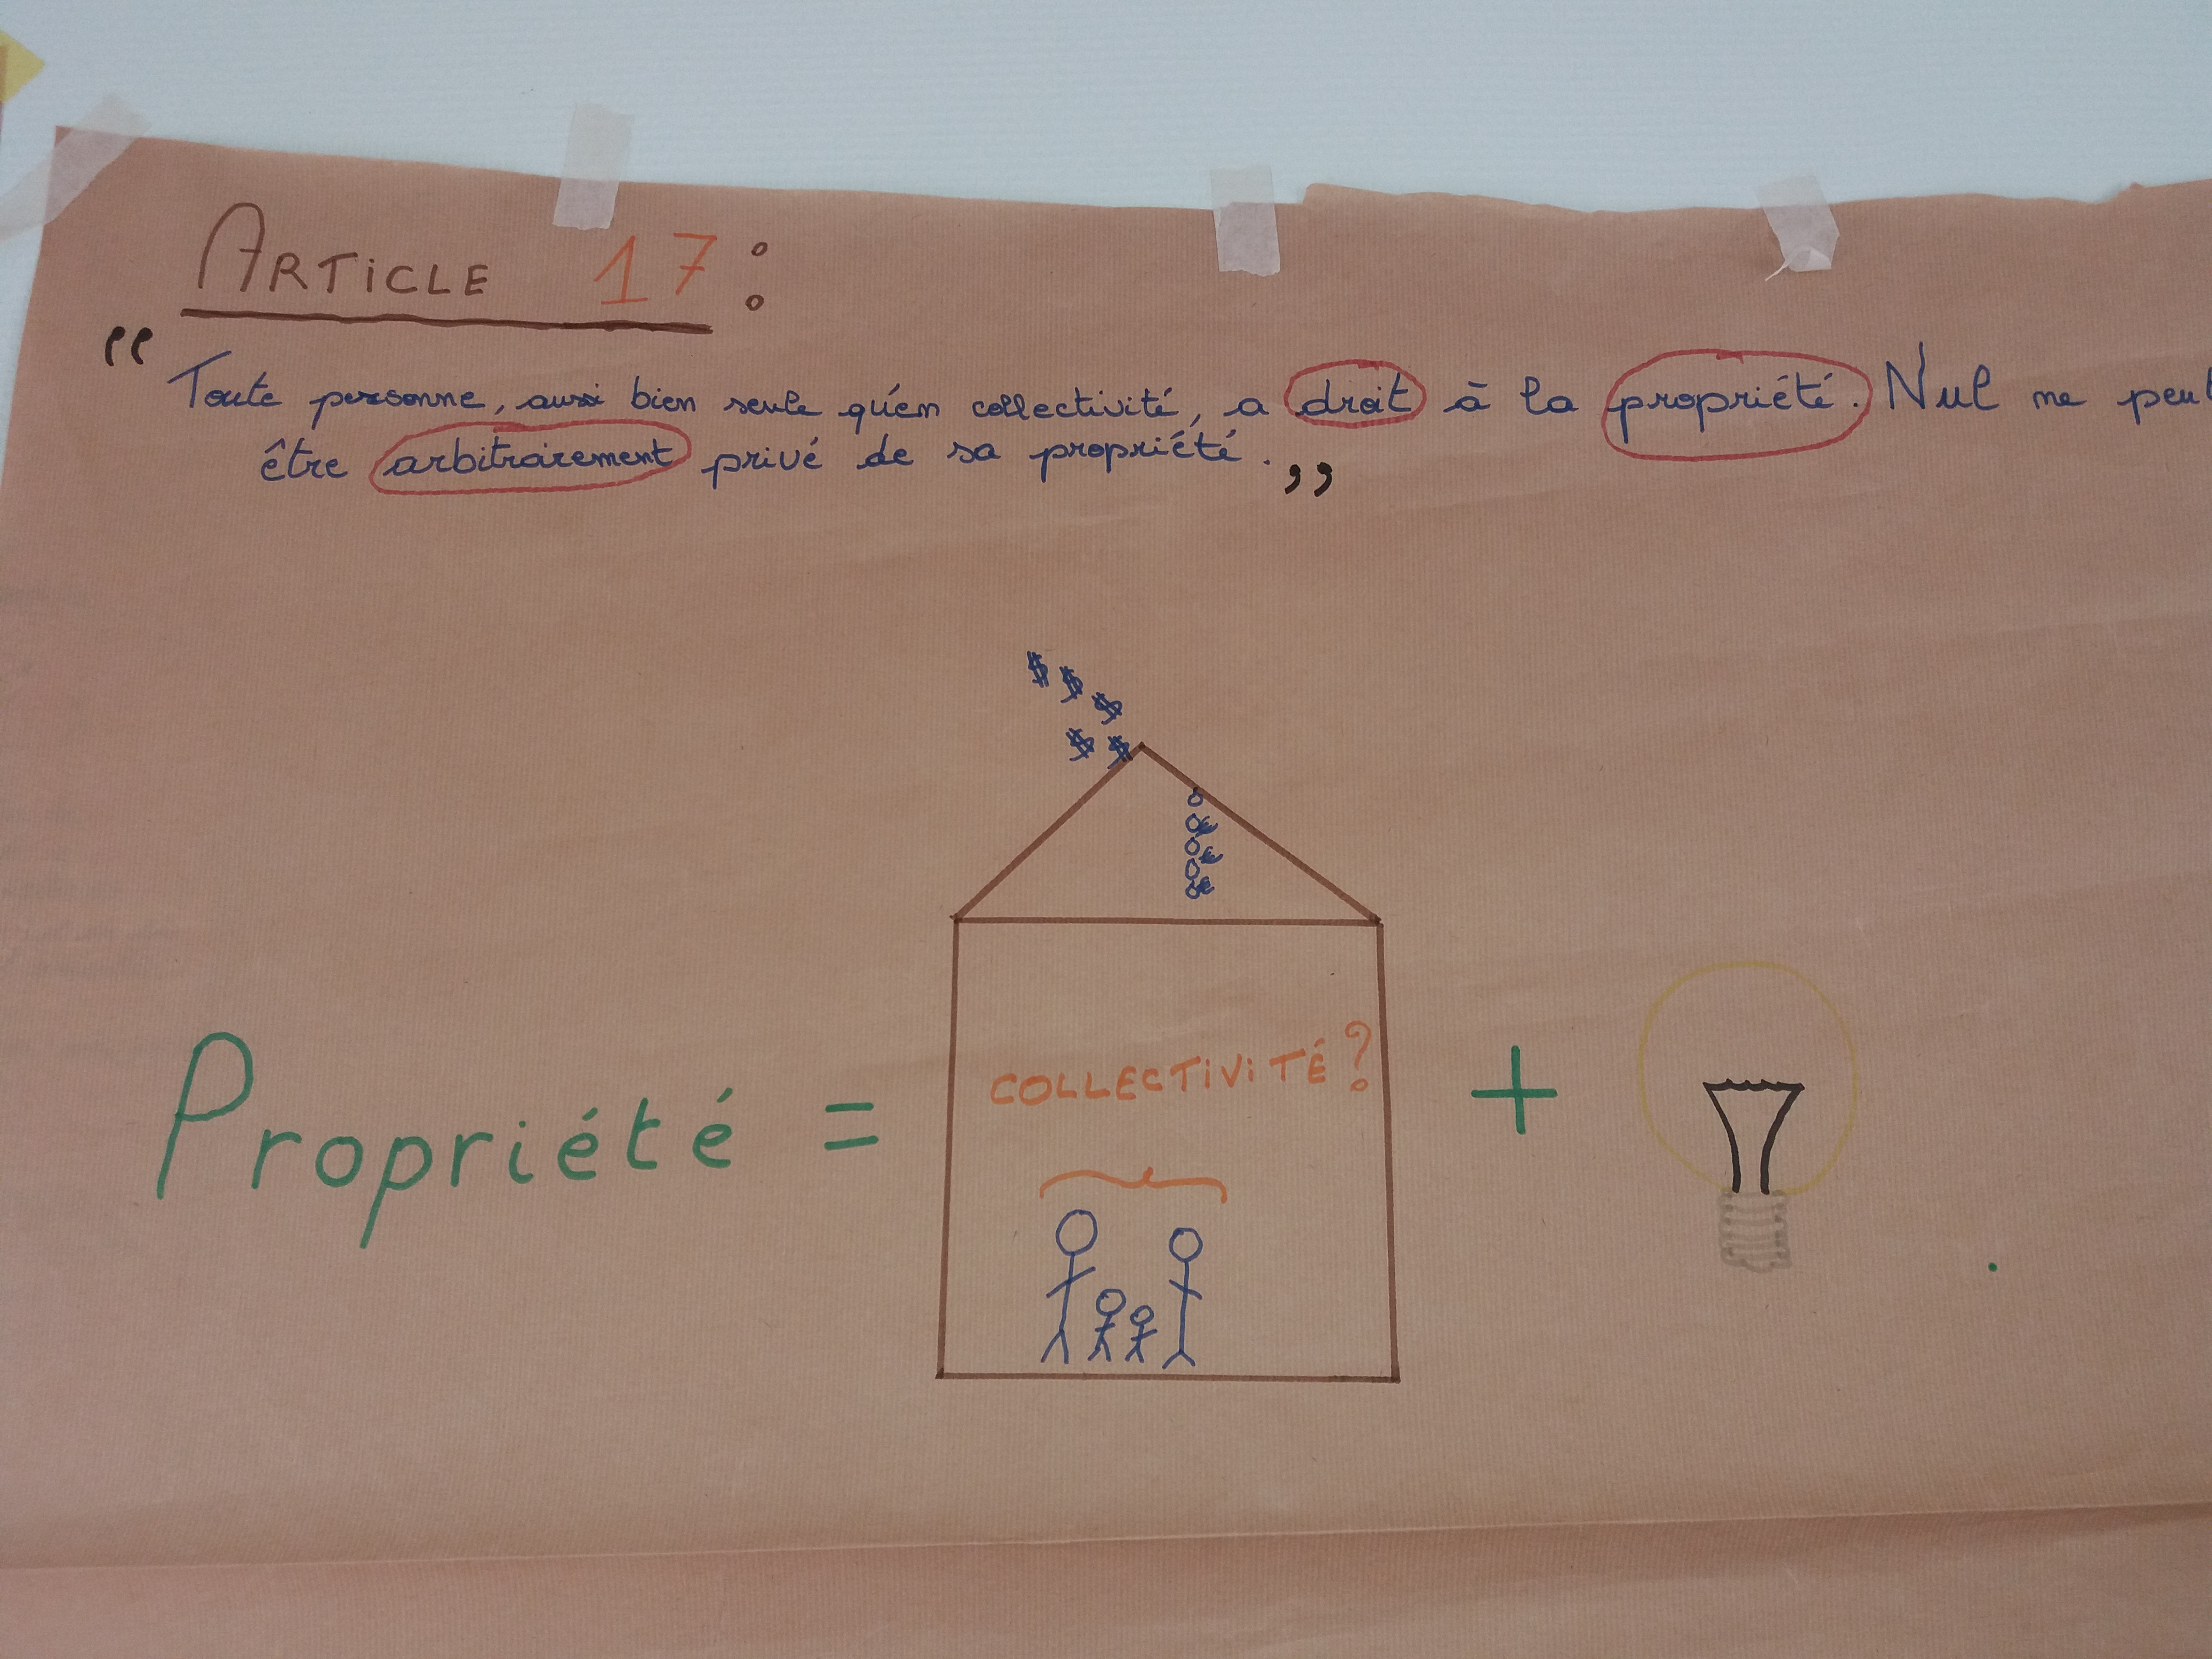 ARTiCLE 17 :
“ Toute personne, aussi bien seule qu'en collectivité, a droit à la propriété. Nul ne peut
être arbitrairement privé de sa propriété. ”
$ $ $
$ $
COLLECTiViTÉ ?
Propriété = + .